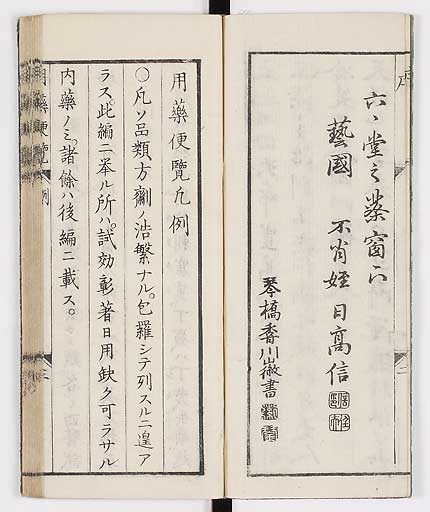 六々堂之藥窗下
藝國 不肖姪 日高信
琴橋香川徽書
用藥便覽凡例
○凡ソ品類方劑ノ浩繁ナル。包羅シテ列スルニ遑ア
ラス。此編ニ挙ル所ハ。試効彰著日用欽ク可ラサル
内藥ノミ。諸餘ハ後編ニ載ス。
用藥便覽 例